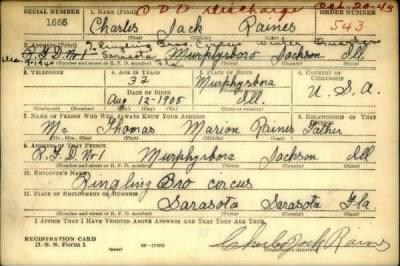 ODD discharge Oct. 20-43
SERIAL NUMBER 1. NAME (Print) ORDER NUMBER
1666 Charles Jack Raines 543
(First) (Middle) (Last)
2. ADDRESS (Print)
Ringling Bros. Circus Winter Quarters
R.F.D. No 1 Sarasota Fla Murphysboro Jackson Ill
(Number and street or R. F. D. number) (Town) (County) (State)
3. TELEPHONE 4. AGE IN YEARS 5. PLACE OF BIRTH 6. COUNTRY OF CITIZENSHIP
32 Murphysboro
DATE OF BIRTH
Aug 12-1905 Ill. U.S.A.
7. NAME OF PERSON WHO WILL ALWAYS KNOW YOUR ADDRESS 8. RELATIONSHIP OF THAT PERSON
Mr Thomas Marion Raines Father
(Mr., Mrs., Miss) (First) (Middle) (Last)
9. ADDRESS OF THAT PERSON
R.F.D. No 1 Murphysboro Jackson Ill
(Number and street or R. F. D. number) (Town) (County) (State)
10. EMPLOYER'S NAME
Ringling Bro circus
11. PLACE OF EMPLOYMENT OR BUSINESS
Sarasota Sarasota Fla
(Number and street or R. F. D. number) (Town) (County) (State)
I AFFIRM THAT I HAVE VERIFIED ABOVE ANSWERS AND THAT THEY ARE TRUE.
REGISTRATION CARD
D. S. S. Form 1 Charles Jack Raines